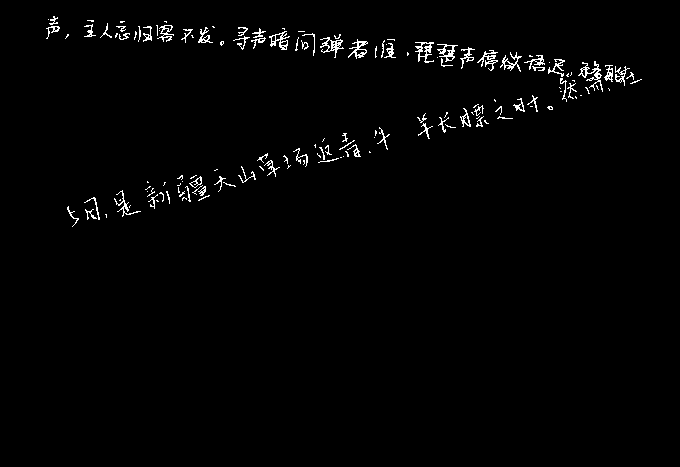 声，主人忘归客不发。寻声暗问弹者谁，琵琶声停欲语迟。移
5月，是新疆天山草场返青、牛羊长膘之时。然而，